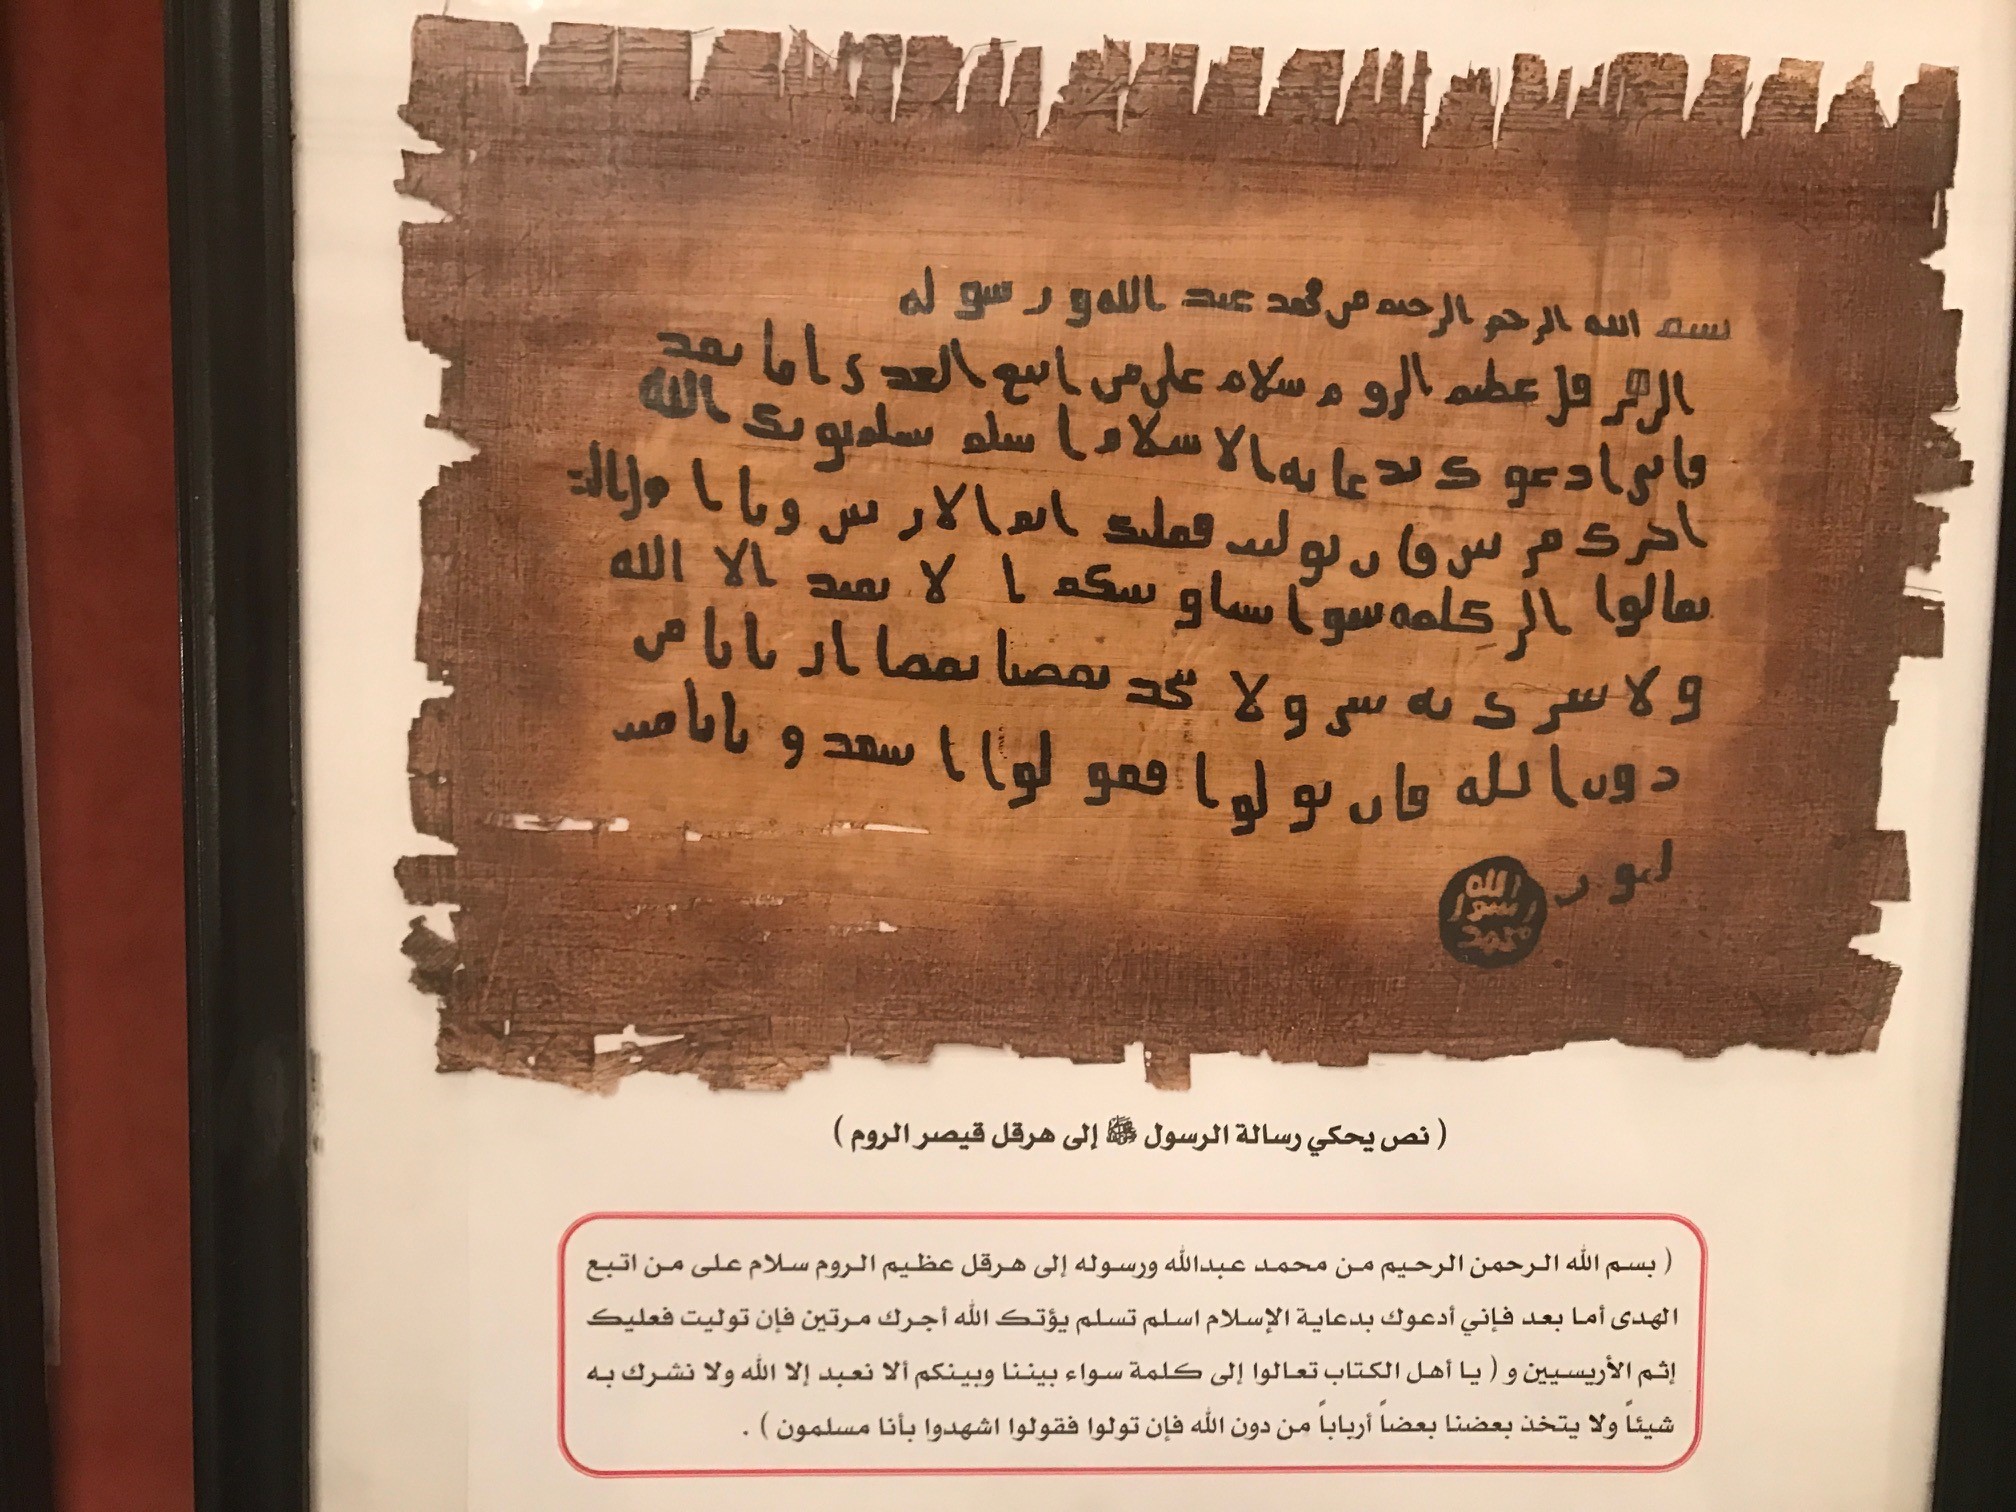 بسم الله الرحمن الرحيم من محمد عبد الله ورسوله
الى هرقل عظيم الروم سلام على من اتبع الهدى اما بعد
فانى ادعوك بدعايه الاسلام اسلم تسلم يوتك الله
اجرك مرتين فان توليت فعليك اثم الاريسيين ويا
تعالوا الى كلمه سوا بيننا وبينكم الا نعبد الا الله
ولا نشرك به شيا ولا يتخذ بعضنا بعضا اربابا من
دون الله فان تولوا فقولوا اشهدوا بانا مسلمون
الله
رسول
محمد
( نص يحكي رسالة الرسول ﷺ إلى هرقل قيصر الروم )
( بسم الله الرحمن الرحيم من محمد عبدالله ورسوله إلى هرقل عظيم الروم سلام على من اتبع
الهدى أما بعد فإني أدعوك بدعاية الإسلام اسلم تسلم يؤتك الله أجرك مرتين فإن توليت فعليك
إثم الأريسيين و ( يا أهل الكتاب تعالوا إلى كلمة سواء بيننا وبينكم ألا نعبد إلا الله ولا نشرك به
شيئاً ولا يتخذ بعضنا بعضاً أرباباً من دون الله فإن تولوا فقولوا اشهدوا بأنا مسلمون ) .